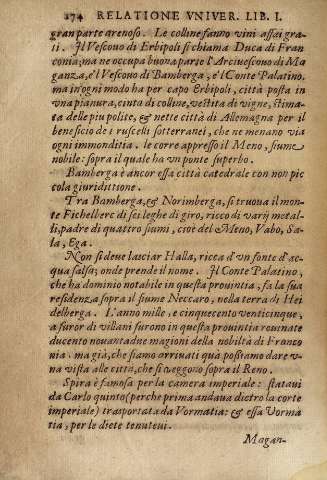 174 RELATIONE VNIVER. LIB. I.
gran parte arenoso. Le colline fanno vini assai gra-
ti. Il Vescouo di Erbipoli si chiama Duca di Fran-
conia; ma ne occupa buona parte l'Arciuescouo di Ma
ganza, e'l Vescouo di Bamberga, e'l Conte Palatino.
ma in ogni modo ha per capo Erbipoli, città posta in
vna pianura, cinta di colline, vestita di vigne, stima-
ta delle piu polite, & nette città di Allemagna per il
beneficio de i ruscelli sotterranei, che ne menano via
ogni immonditia. le corre appresso il Meno, fiume
nobile: sopra il quale ha vn ponte superbo.
Bamberga è ancor essa città catedrale con non pic
cola giuridittione.
Tra Bamberga, & Norimberga, si truoua il mon-
te Fichellerc di sei leghe di giro, ricco di varij metal-
li, padre di quattro fiumi, cioè del Meno, Vabo, Sa-
la, Ega.
Non si deue lasciar Halla, ricca d'vn fonte d'ac-
qua salsa, onde prende il nome. Il Conte Palatino,
che ha dominio notabile in questa prouintia, fa la sua
residenza sopra il fiume Neccaro, nella terra di Hei
delberga. L'anno mille, e cinquecento venticinque,
a furor di villani furono in questa prouintia rouinate
ducento nouantadue magioni della nobiltà di Franco
nia. ma già, che siamo arriuati quà possiamo dare v-
na vista alle città, che si veggono sopra il Reno.
Spira è famosa per la camera imperiale: stataui
da Carlo quinto (perche prima andaua dietro la corte
imperiale) trasportata da Vormatia: & essa Vorma
tia, per le diete tenuteui.
Magan-